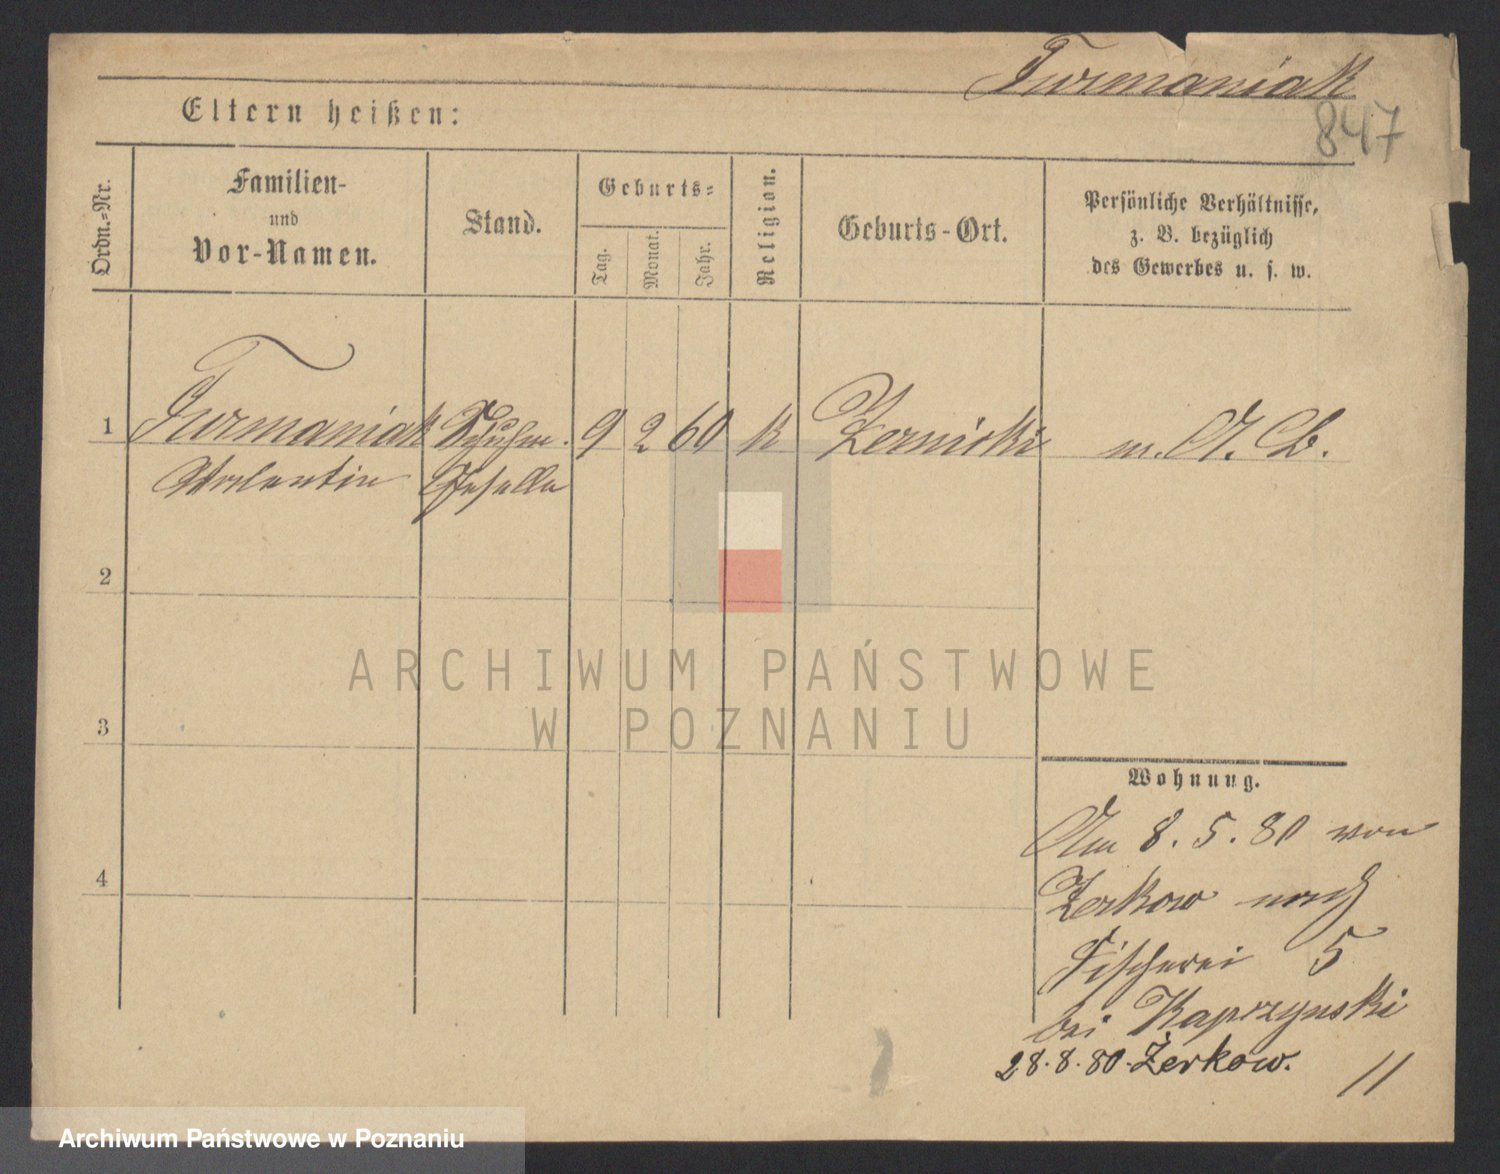 Turmaniak
847
Eltern heißen:
Ordn.-Nr.
Familien-
und
Vor-Namen.
Stand.
Geburts-
Tag.
Monat.
Jahr.
Religion.
Geburts-Ort.
Persönliche Verhältnisse,
z. B. bezüglich
des Gewerbes u. s. w.
1 Turmaniak Schuhm. 9 2 60 k Zernicki m. A. B.
Valentin Geselle
2
3
4
Wohnung.
Am 8. 5. 80 von
Zerkow nach
Fischerei 5
bei Kaprzynski
28.8.80. Żerkow.
11
ARCHIWUM PAŃSTWOWE
W POZNANIU
Archiwum Państwowe w Poznaniu